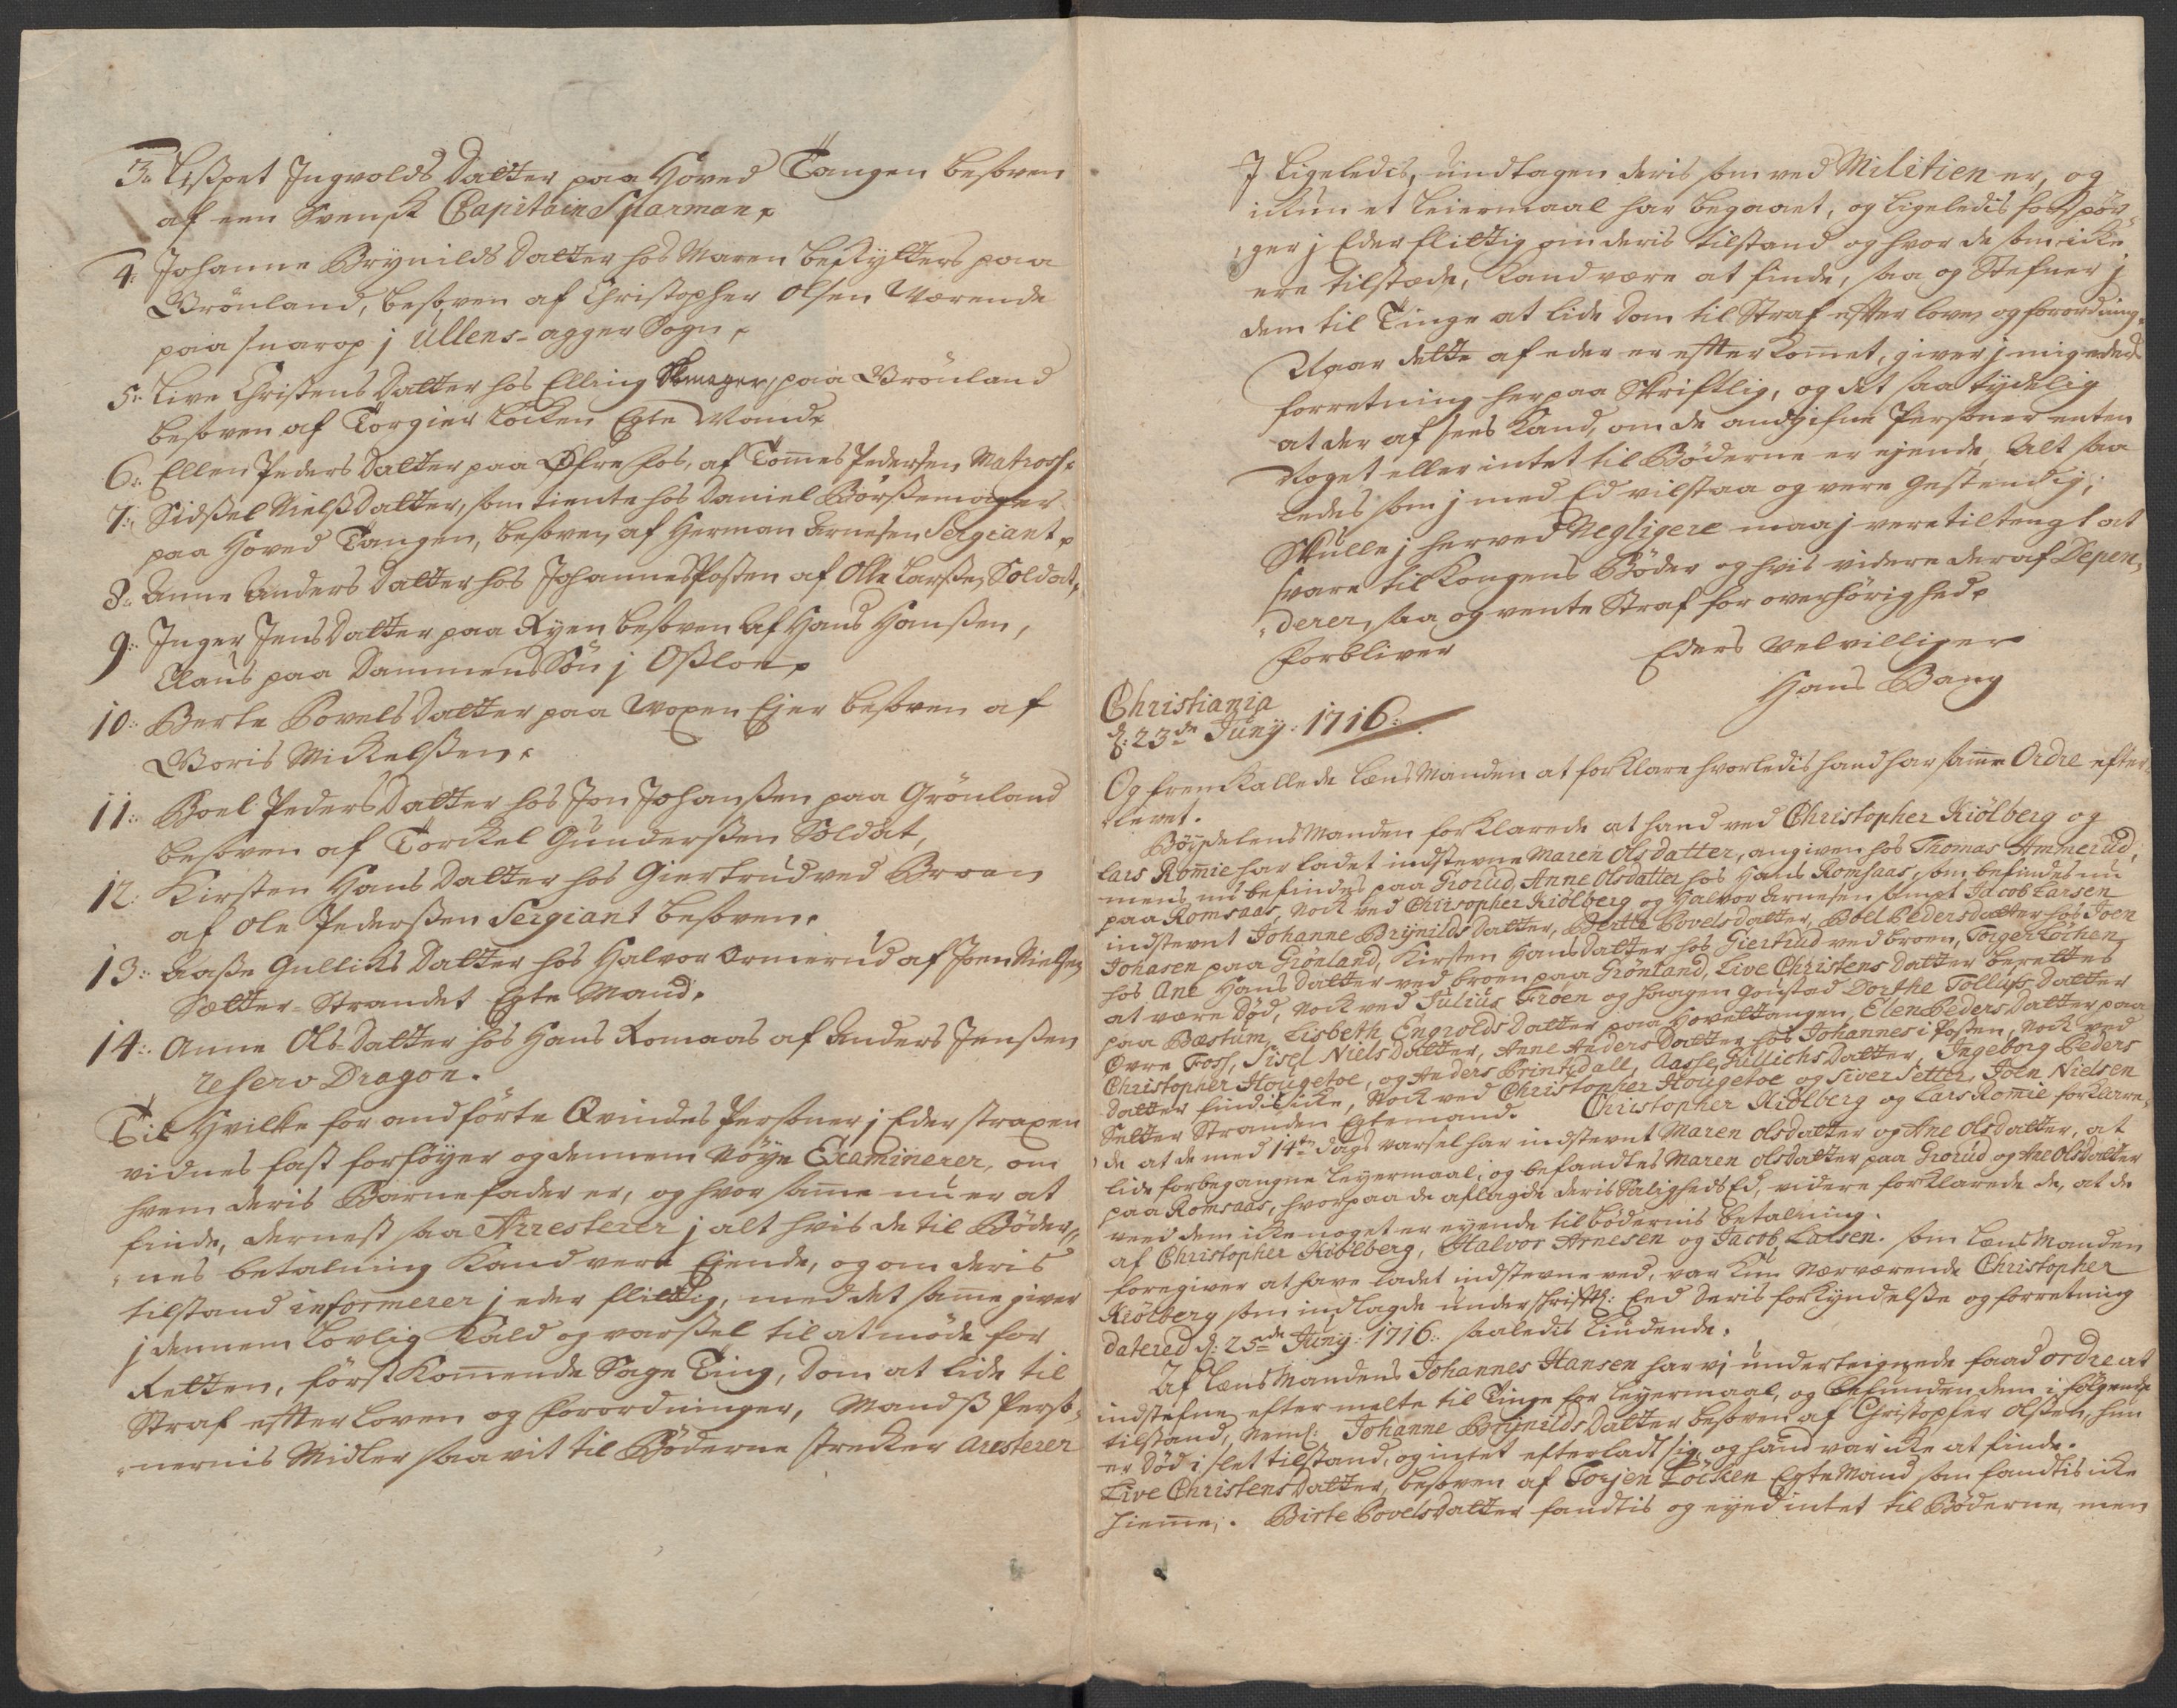 3: Lißpet Ingvolds Datter paa Hoved Tangen besoven
af een Svensk Capitain Sparman,
4: Johanne Brynilds Datter hos Maren beskytters paa
Grönland, besoven af Christopher Olsen Værende
paa snarop j Ullens-agger Sogn,
5: Live Christens Datter hos Elling Skomager, paa Grönland
besoven af Torgier Löcken Egte Mand,
6: Ellen Peders Datter paa Øfre fos, af Tommes Pedersen Matross,
7: Sidßel Nielß Datter, som tiente hos Daniel Börßemager
paa Hoved Tangen, besoven af Herman Arnesen Sergiant,
8: Anne Anders Datter hos Johannes Posten af Olle Larßen Soldat,
9: Inger Jens Datter paa Ryen besoven af Hans Hanßen,
Claus paa Dammens Sön j Oßloe,
10: Berte Povels Datter paa Woxen Ejer besoven af
Boris Mickelßen,
11: Boel Peders Datter hos Jon Johanßen paa Grönland
besoven af Torckel Gunderßen Soldat,
12: Kirsten Hans Datter hos Giertrud ved Broen
af Ole Pederßen Sergiant besoven,
13: Aaße Gulliks Datter hos Halvor Ormerud af Joen Nielßen
Sætter-Strandet Egte Mand,
14: Anne Ols-Datter hos Hans Romaas af Anders Jenßen
reserv Dragon.
Til Hvilke for andförte Qvindes Personer j Eder strapen
vidnes fast forföyer og dennem nöye Examinerer, om
hvem deris Barnefader er, og hvor samme nu er at
finde, dernest saa Arresterer j alt hvis de til Böder-
nes betalning kand vere Ejende, og om deris
tilstand informerer j eder flittig, med det samme giver
j dennem Lovlig Kald og varßel til at möde for
Retten, först Kommende Sage Ting, Dom at lide til
Straf efter Loven og forordninger, Mandß Perso-
nernis Midler saavit til Böderne strecker Aresterer
J ligeledis, undtagen deris som ved Militien er, og
ickun et Leiermaal har begaaet, og ligeledis forspör-
ger j Eder flittig om deris tilstand og hvor de som icke
ere tilstæde, Kand være at finde, saa og Stefner j
dem til Tinge at lide Dom til Straf efter loven og forordning.
Naar dette af eder er efterkommet, giver j mig eders
forretning herpaa Skriftlig, og det saa tydelig
at der af sees Kand, om de andgifne Personer enten
Noget eller intet til Böderne er ejende Alt saa
ledes som j med Ed vilstaa og vere gestendig,
Skulle j herved Negligere maa j vere tiltengt at
svare til Kongens Böder og hvis videre deraf Depen-
derer, saa og vente Straf for overhörighed,
forbliver Eders velvilliger
Hans Bang
Christiania
d: 23de Juny: 1716:
Og fremkallede LænsManden at forklare hvorledis hand har samme Ordre efter-
levet.
BöydelensManden forklarede at hand ved Christopher Kiölberg og
Lars Romie har ladet indstevne Maren Olsdatter, angiven hos Thomas Ammerud,
mens nu befindes paa Grorud, Anne Olsdatter hos Hans Romsaas, som befindes nu
paa Romsaas, Nock ved Chirsopher Kiölberg og Halvor Arnesen samt Jacob Larsen
indstevnt Johanne Brynilds Datter, Bertte Povelsdatter, Boel Pedersdatter hos Joen
Johasen paa Grönland, Kirsten Hans datter hos Giertrud ved broen, Torger Löchen
hos Ane Hans datter ved broen paa Grönland, Live Christens datter berettes
at være död, Nock ved Julius Fröen og Haagen Goustad Dorthe Tollufs datter
paa Bæstum, Lisbeth Engvolds Datter paa Hovettangen, Elen Peders datter paa
Övre Foss, Sisel Niels Datter, Anne Anders Datter hos Johannes i Posten, Nock ved
Christopher Hougetoe, og Anders Printsdall, Aasse Gullichs Datter, Ingeborg Peders
datter findis icke, Nock ved Christopher Hougetoe og Siver Setter, Joen Nielsen
Setter Stranden Egtemand. Christopher Kiölberg og Lars Romie forklare-
de at de med 14ten dags varsel har indstevnt Maren Olsdatter og Ane Olsdatter, at
lide forbegangne Leyermaal; og befandtes Maren Olsdatter paa Grorud og Ane Olsdatter
paa Romsaas, hvorpaa de aflagde deris Saligheds Ed, videre forklarede de, at de
veed dem icke noget er eyende til bödernis betalning.
af Christopher Kiölberg, Halvor Arnesen og Jacob Larsen. som LænsManden
foregiver at have ladet indstevne ved, var Kun nærværende Christopher
Kiölberg som indlagde under schriftl: Eed deris forkyndelße og forretning
datered d: 25de Juny: 1716: saaledis liudende.
Af LænsMandens Johannes Hansen har vj underteignede faad ordre at
indstefne efter melte til Tinge for Leyermaal, og befunden dem i fölgende
tilstand, Neml: Johanne Brynilds Datter besoven af Christopher Olßen, hun
er död i slet tilstand, og intet efterladt sig og hand var icke at finde.
Live Christens Datter, besoven af Torjen Löcken Egte Mand som fandtis icke
hiemme,. Birte Povelsdatter fandtis og eyed intet til Böderne, men